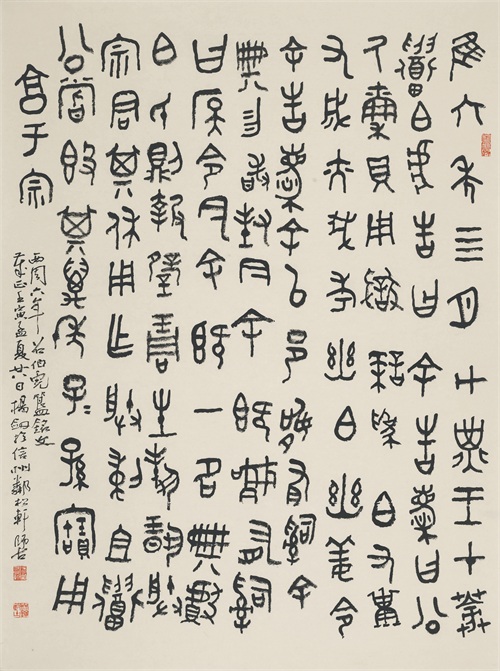 隹六年四月甲子王才𦯧
召白虎告曰余告慶曰公
厥稟貝用獄諫為白又祗
又成亦我考幽白幽姜令
余告慶余以邑訊有司余
典勿敢封今余既訊有司
曰令今余既一名典獻
白氏則報璧琱生對揚朕
宗君其休用乍朕剌且召
公嘗簋其萬年子孫寶用
享于宗
西周六年召伯虎簋銘文
壬寅孟夏廿八日楊於信州鄰松軒